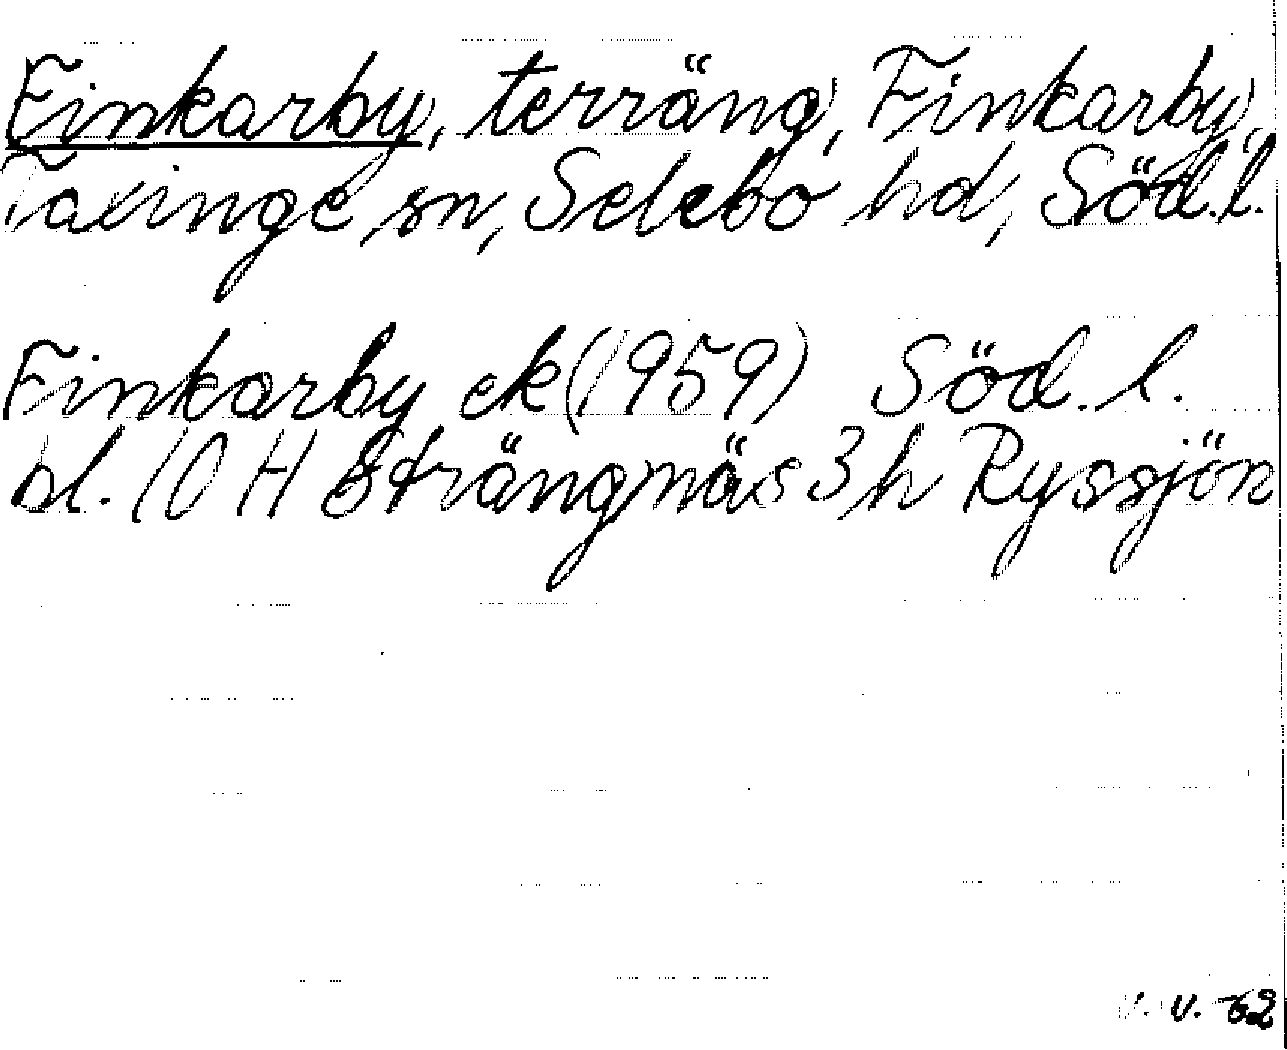 Finkarby, terräng, Finkarby,
Taxinge sn, Selebo hd, Söd.l.
Finkarby ek (1959) Söd.l.
bl. 10 H Strängnäs 3 h Ryssjön
V.V. 62